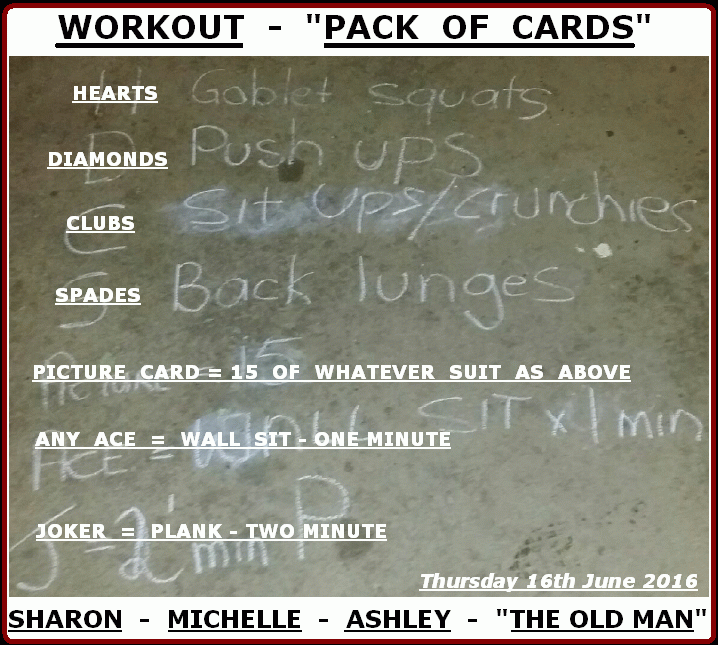 WORKOUT - "PACK OF CARDS"
HEARTS H Goblet squats
DIAMONDS D Push ups
CLUBS C Sit ups/crunchies
SPADES S Back lunges
Picture = 15
PICTURE CARD = 15 OF WHATEVER SUIT AS ABOVE
ANY ACE = WALL SIT - ONE MINUTE
ACE = SIT x 1 min
JOKER = PLANK - TWO MINUTE
J = 2 min P
Thursday 16th June 2016
SHARON - MICHELLE - ASHLEY - "THE OLD MAN"